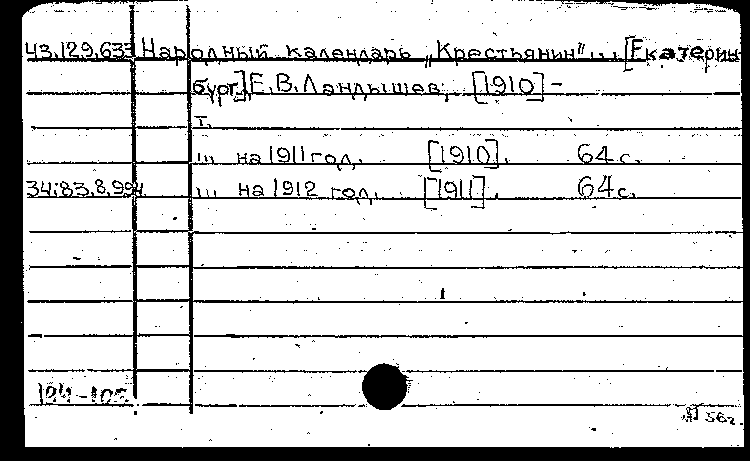 43.129.633 Народный календарь „Крестьянин“... [Екатерин-
бург], Е. В. Ландышев, [1910] –
т.
... на 1911 год. [1910]. 64 с.
34:83.8.994 ... на 1912 год. [1911]. 64 с.
194-105
XI 56г.